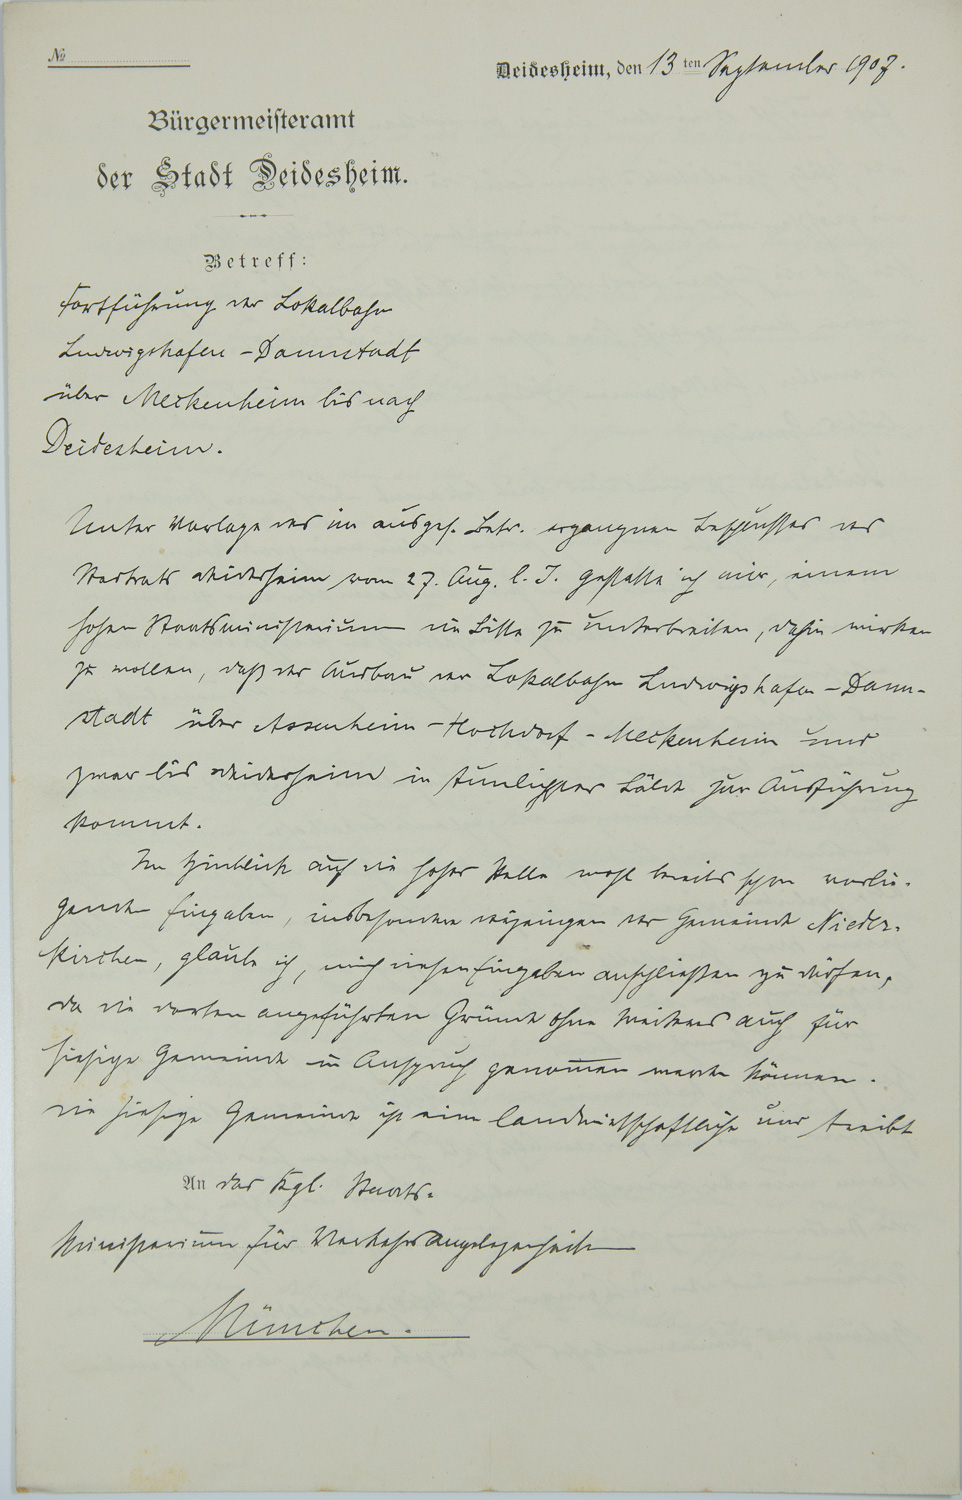 №
Deidesheim, den 13ten September 1907.
Bürgermeisteramt
der Stadt Deidesheim.
Betreff:
Fortführung der Lokalbahn
Ludwigshafen - Dannstadt
über Meckenheim bis nach
Deidesheim.
Unter Vorlage des im ausges. Betr. ergangnen Beschlusses des
Stadtrats Deidesheim vom 27. Aug. l. J. gestatte ich mir, einem
hohen Staatsministerium die Bitte zu unterbreiten, dahin wirken
zu wollen, daß der Ausbau der Lokalbahn Ludwigshafen - Dann-
stadt über Assenheim - Hochdorf - Meckenheim und
zwar bis Deidesheim in tunlichster Bälde zur Ausführung
kommt.
Im Hinblick auf die hoher Stelle wohl bereits schon vorlie-
genden Eingaben, insbesondere diejenigen der Gemeinde Nieder-
kirchen, glaube ich, mich diesen Eingaben anschließen zu dürfen,
da die dorten angeführten Gründe ohne Weiteres auch für
hiesige Gemeinde in Anspruch genommen werden können.
Die hiesige Gemeinde ist eine landwirtschaftliche und treibt
An das Kgl. Staats-
Ministerium für Verkehrsangelegenheiten
München.